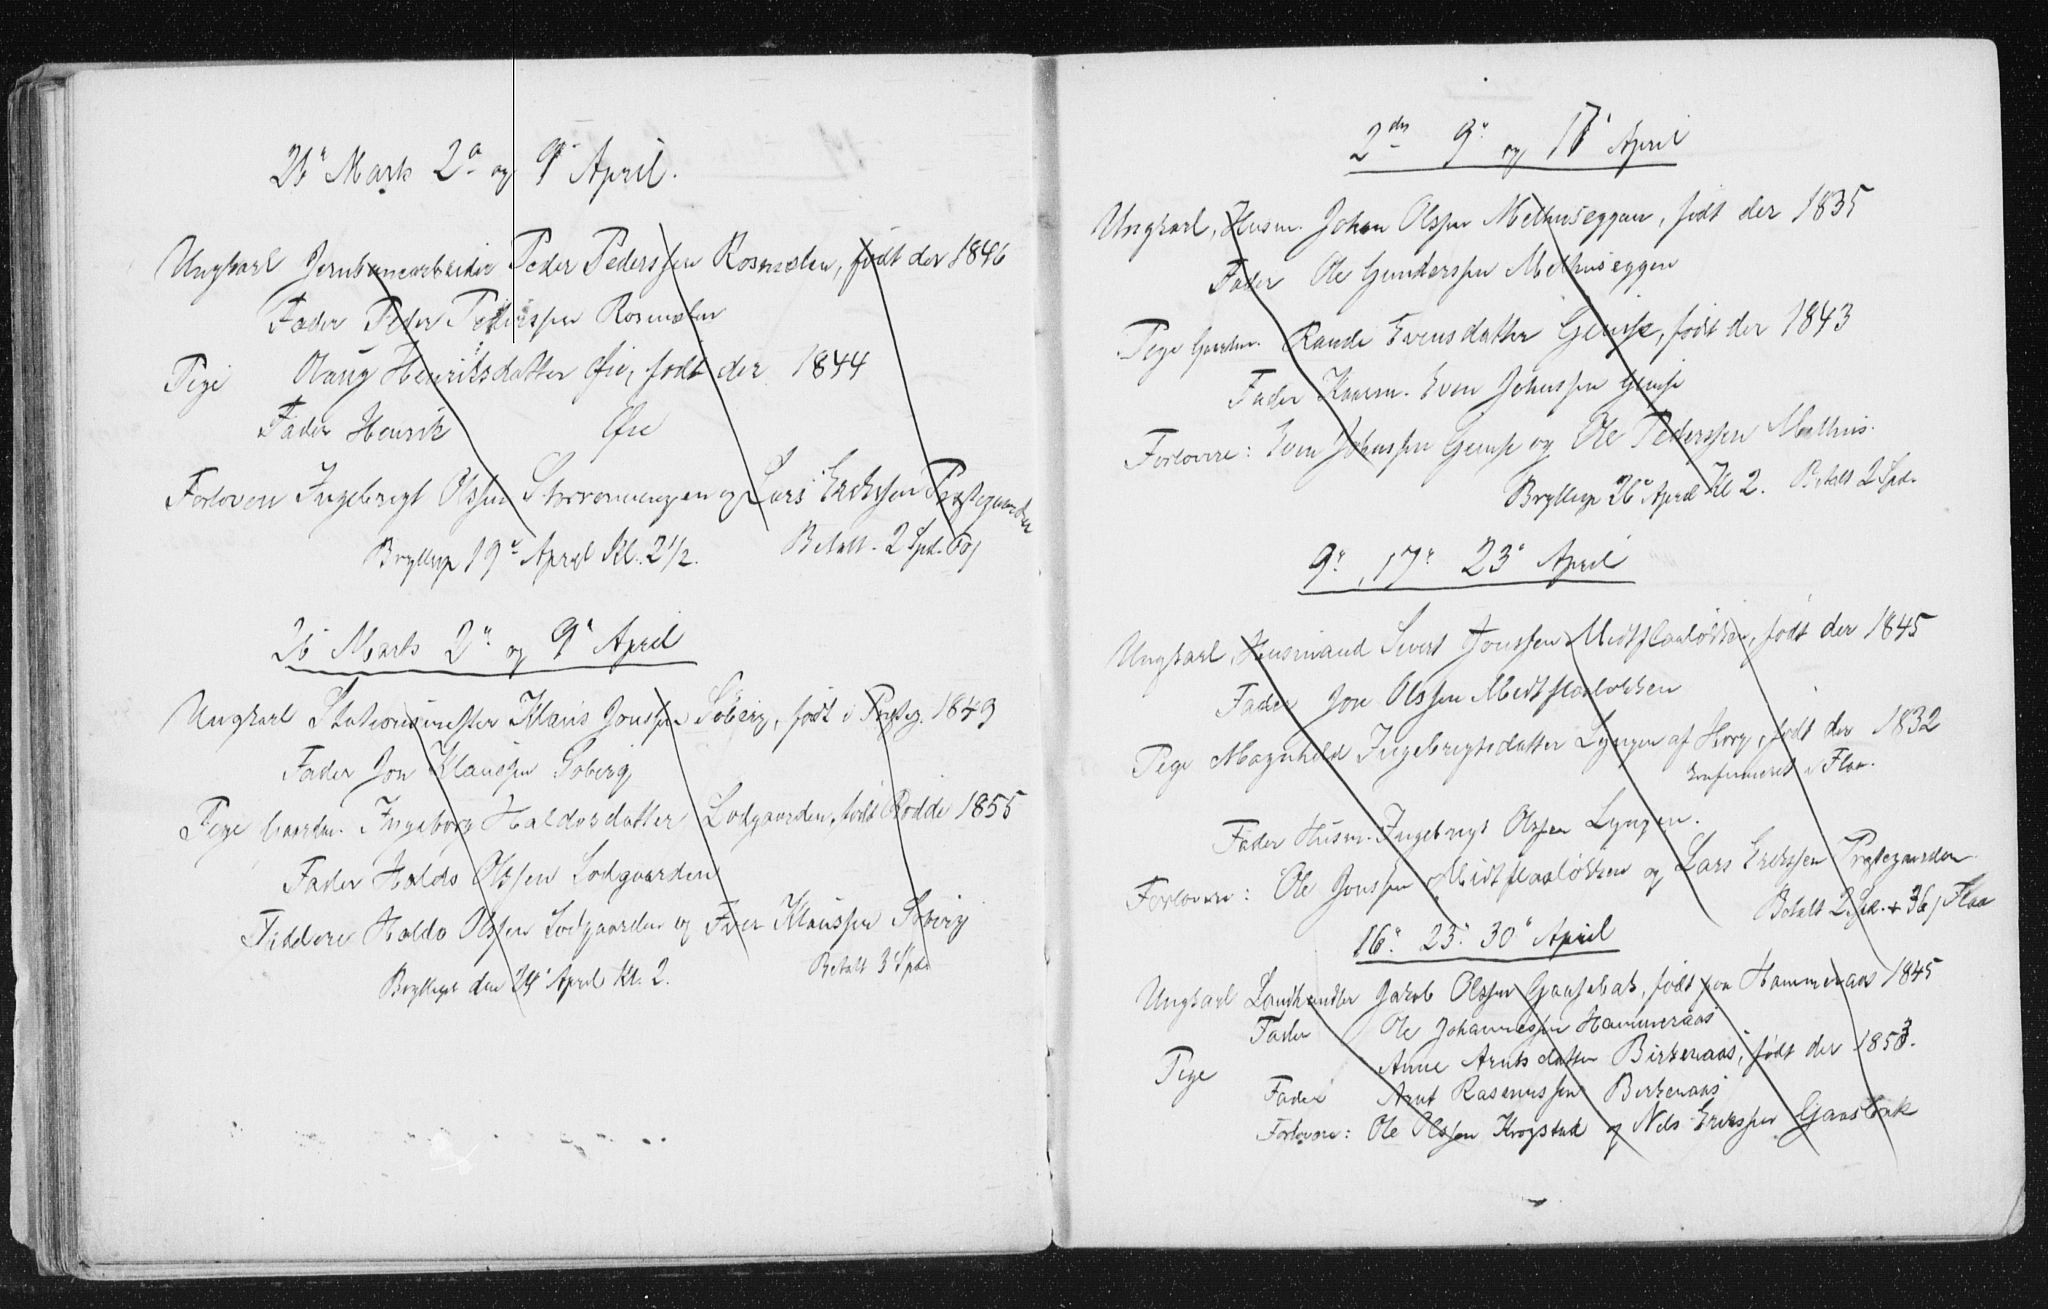 26' Marts 2' og 9' April.
Ungkarl Jernbanearbeider Peder Pederssen Rosmælen, født der 1846
Fader Peder Pederssen Rosmælen
Pige Olaug Henriksdatter Øie, født der 1844
Fader Henrik Øie
Forlovere Ingebrigt Olssen Storrommungen og Lars Erikssen Præstegaarden
Bryllup 19' April Kl. 2 1/2. Betalt. 2 Spd.
26' Marts 2' og 9' April
Ungkarl Stationsmester Klaus Jonssen Søberg, født i 1849
Fader Jon Klaussen Søberg
Pige Gaardm. Ingeborg Haldosdatter Lodgaarden, født Rodde 1855
Fader Haldo Olssen Lodgaarden
Haldo Olssen Lodgaarden og Iver Klaussen Søberg
Bryllup den 24' April Kl. 2. Betalt 3 Spd.
2den 9' og 17' April
Ungkarl, Husm. Johan Olssen Melhuseggen, født der 1835
Fader Ole Gunderssen Melhuseggen
Pige Gaardm. Randi Evensdatter Gimse, født der 1843
Fader Kaarm. Even Johnssen Gimse
Forlovere: Even Johnssen Gimse og Ole Pederssen Melhus.
Bryllup 26' April Kl 2. Betalt 2 Spd.
9', 17' 23' April
Ungkarl, Husmand Sivert Jonssen Midtflaaløkken, født der 1845
Fader Jon Olssen Midtflaaløkken
Pige Magnhild Ingebrigtsdatter Lyngen af Horg, født der 1832
Confirmeret i Flaa.
Fader Husm. Ingebrigt Olssen Lyngen.
Forlovere: Ole Jonssen Midtflaaløkken og Lars Erikssen Præstegaarden
Betalt 2 Spd. + 36 Flaa
16' 23' 30' April
Ungkarl Landhandler Jakob Olssen Gaasbak, født paa Hammeraas 1845
Fader Ole Johannessen Hammeraas
Pige Anne Arntsdatter Birkenaas, født der 1853.
Fader Arnt Rasmussen Birkenaas
Forlovere: Ole Olssen Krogstad og Nils Erikssen Gaasbak